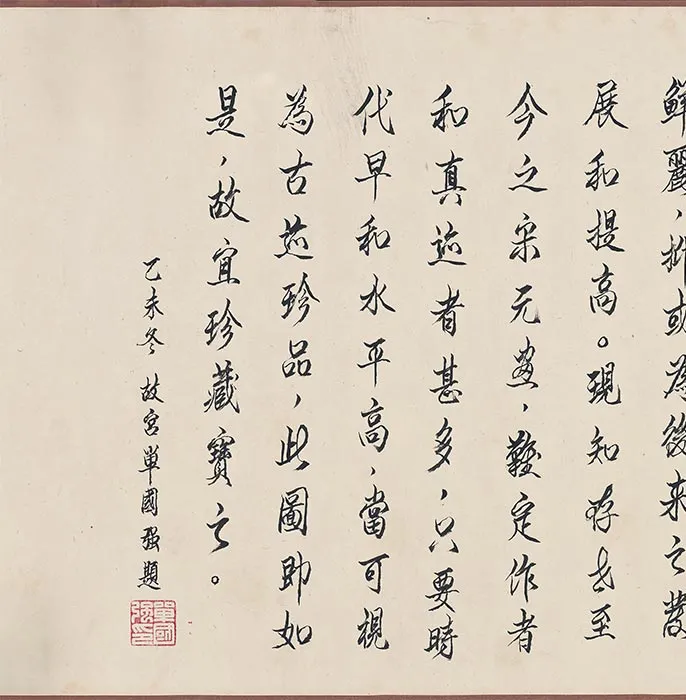 鮮麗，抑或為後來之發
展和提高。現知存世至
今之宋元畫，難定作者
和真迹者甚多，只要時
代早和水平高，當可視
為古迹珍品，此圖即如
是，故宜珍藏寶之。
乙未冬 故宮單國强題
單國强印